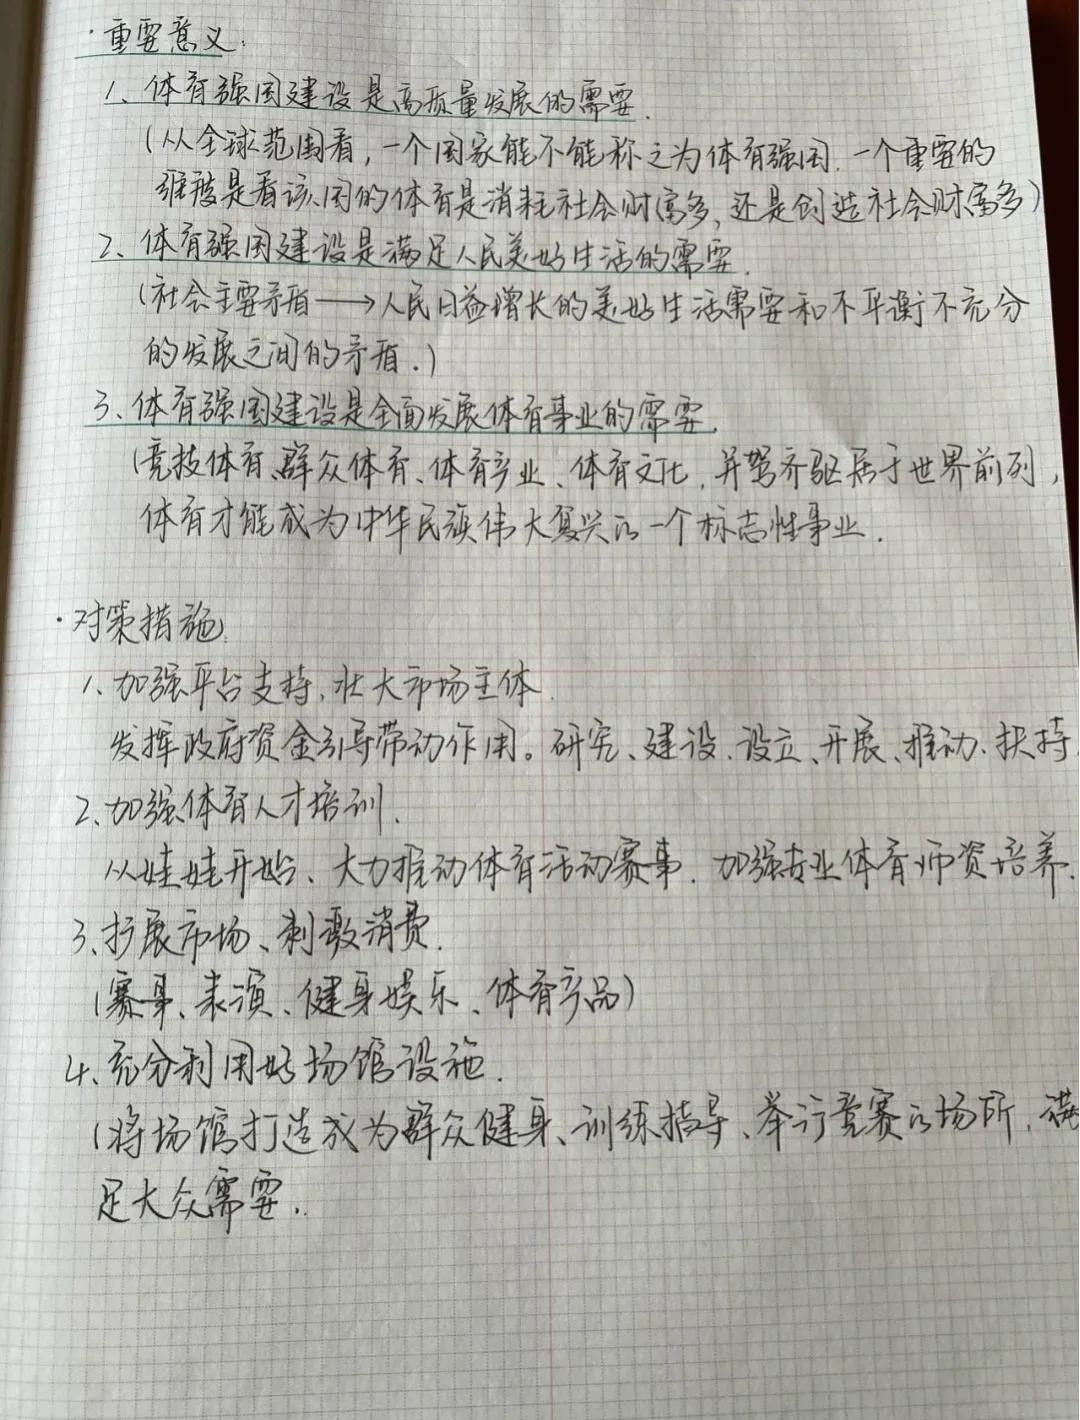 ·重要意义.
1、体育强国建设是高质量发展的需要.
(从全球范围看,一个国家能不能称之为体育强国.一个重要的
维度是看该国的体育是消耗社会财富多,还是创造社会财富多)
2、体育强国建设是满足人民美好生活的需要.
(社会主要矛盾→人民日益增长的美好生活需要和不平衡不充分
的发展之间的矛盾.)
3、体育强国建设是全面发展体育事业的需要.
(竞技体育、群众体育、体育产业、体育文化,并驾齐驱居于世界前列,
体育才能成为中华民族伟大复兴的一个标志性事业.
·对策措施.
1、加强平台支持,壮大市场主体.
发挥政府资金引导带动作用。研究、建设、设立、开展、推动、扶持.
2、加强体育人才培训.
从娃娃开始、大力推动体育活动赛事.加强专业体育师资培养.
3、扩展市场、刺激消费.
(赛事、表演、健身娱乐、体育产品)
4、充分利用好场馆设施.
(将场馆打造成为群众健身、训练指导、举行竞赛的场所,满
足大众需要..